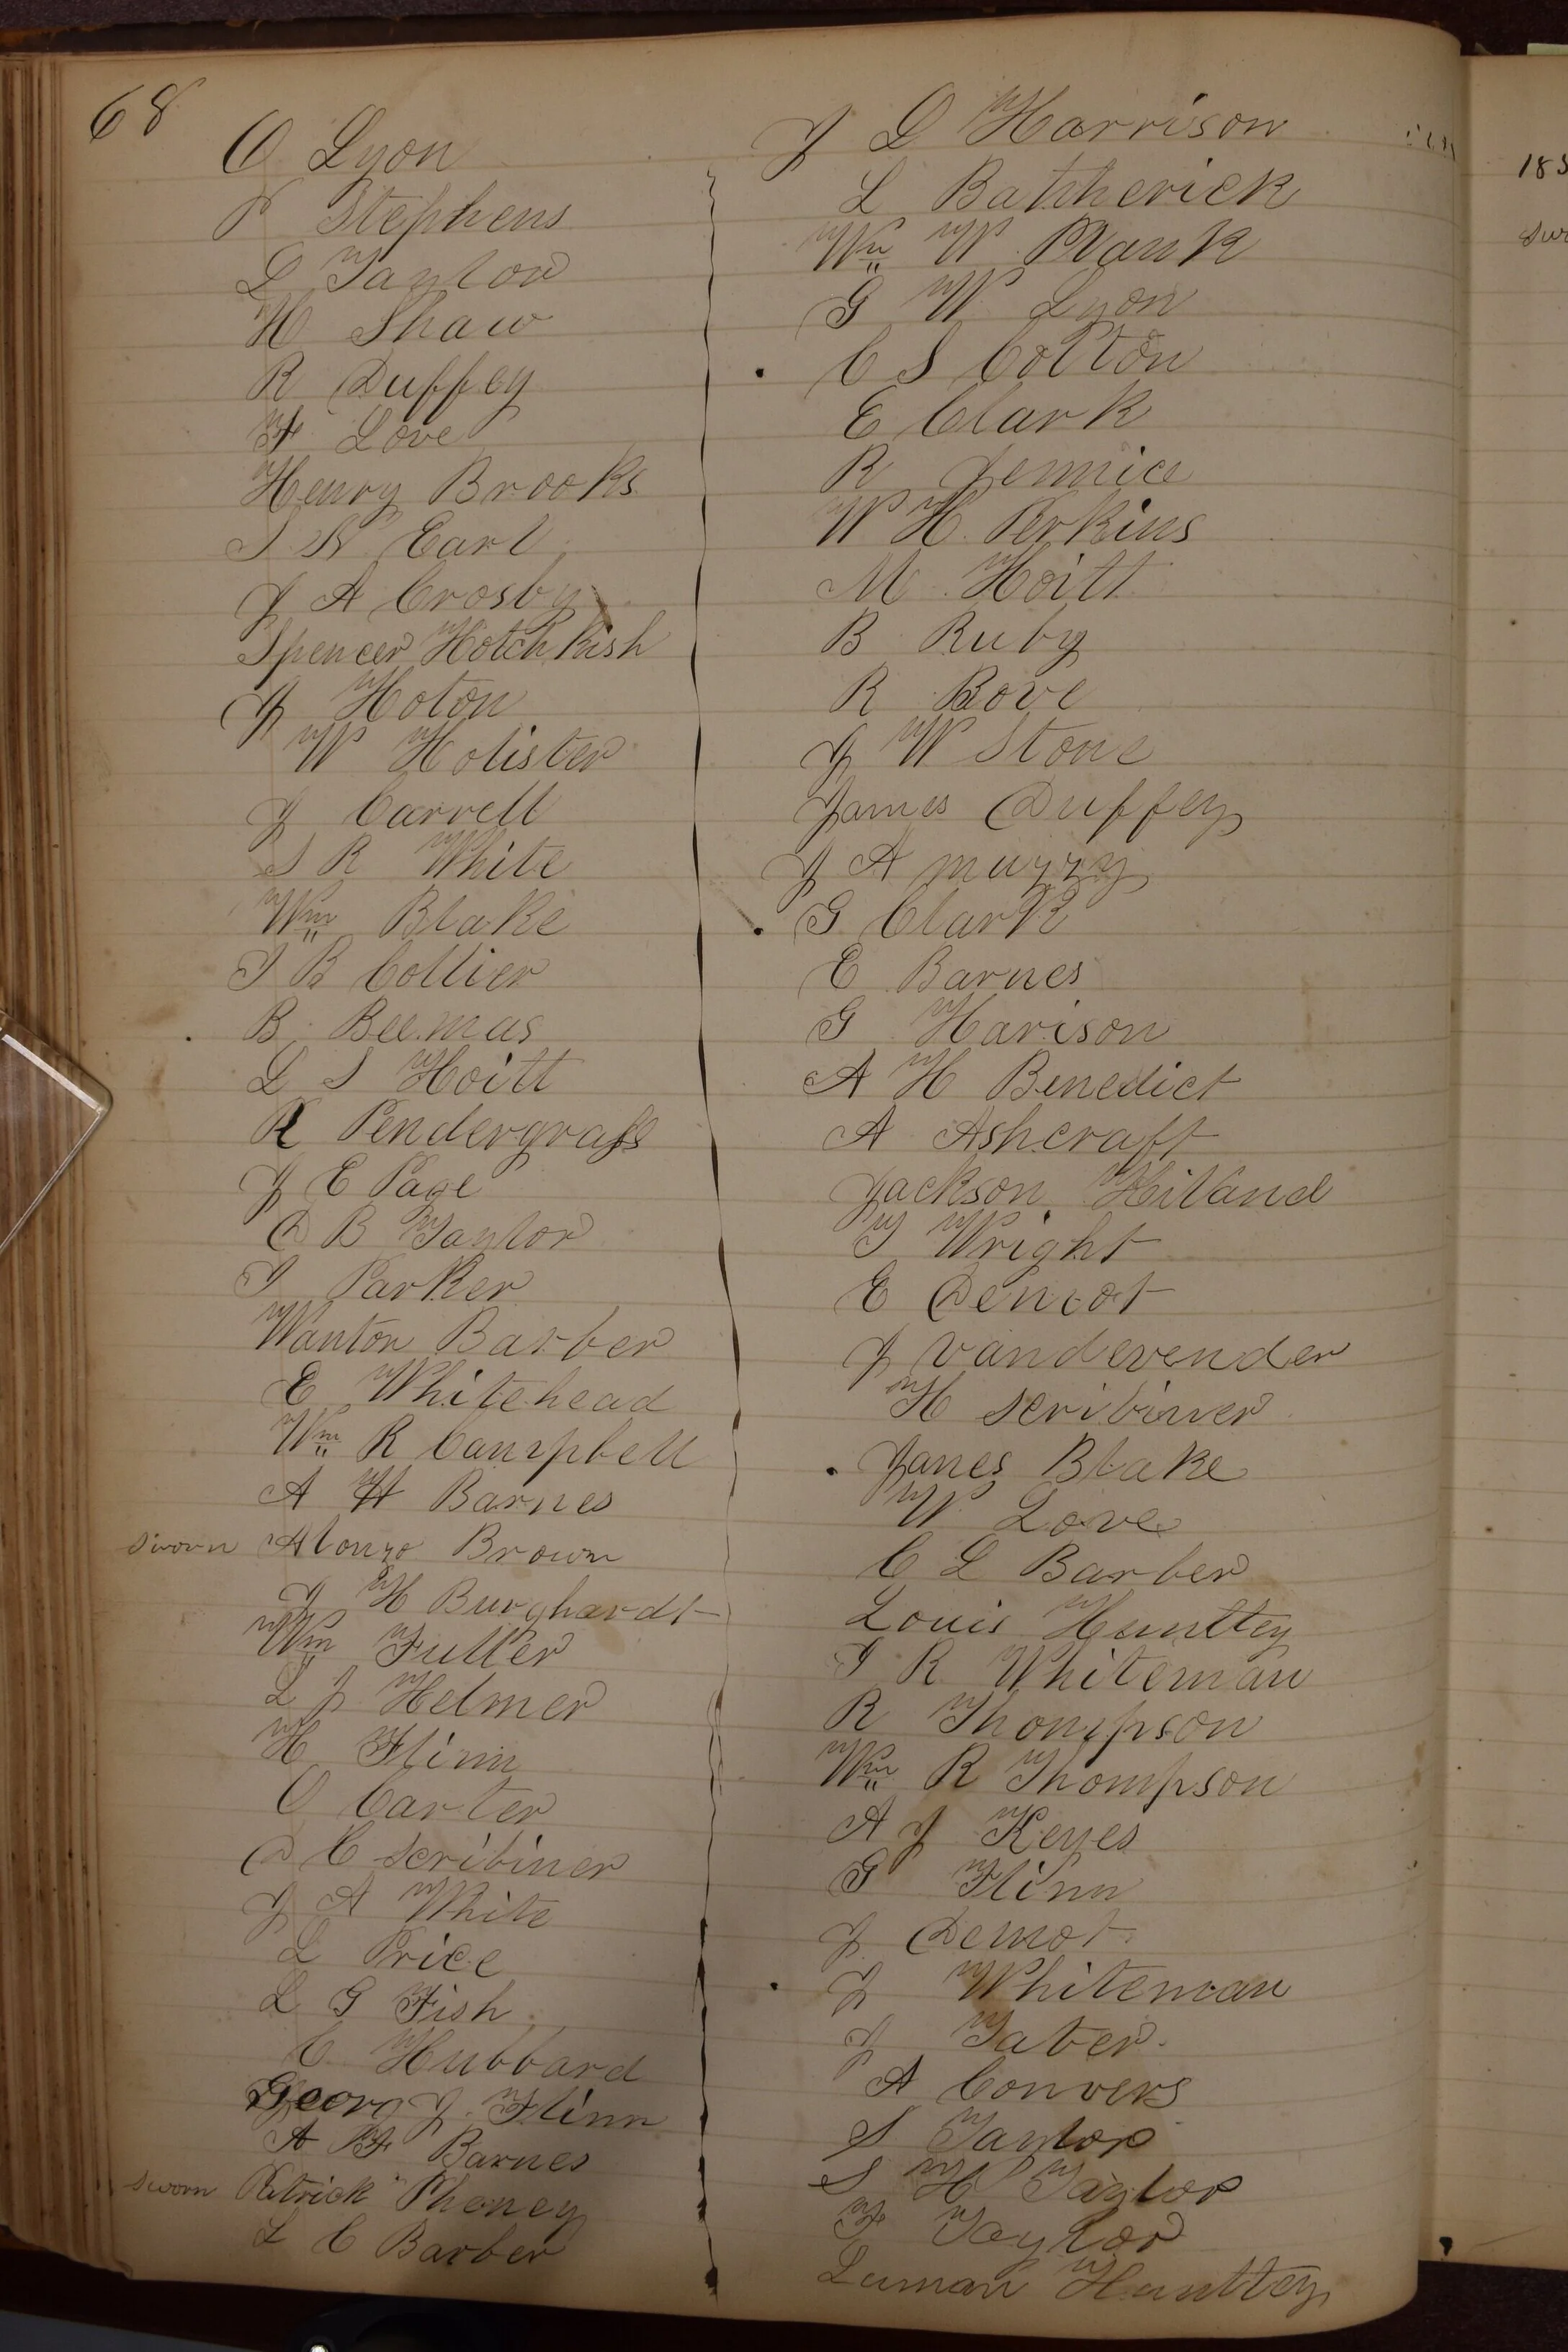 68
O Lyon
P Stephens
L Taylor
H Shaw
R Duffey
F Love
Henry Brooks
S N Earl
J A Crosby
Spencer Hotchkish
J Hoton
W Holister
J Carrell
S R White
Wm Blake
I B Collier
B Beemas
L S Hoitt
R Pendergrass
J E Page
D B Taylor
I Parker
Wanton Barber
E Whitehead
Wm R Campbell
A H Barnes
sworn Alonzo Brown
J H Burghardt
Wm Fuller
L J Helmer
H Flinn
O Carter
D C Scribiner
J A White
L Price
L G Fish
C Hubbard
Georg J Flinn
A F Barnes
sworn Patrick Phoney
L C Barber
J D Harrison
L Bathherick
Wm W Plank
G W Lyon
C S Colton
E Clark
R Jennice
W H Perkins
M Hoitt
B Ruby
R Bove
J W Stone
James Duffey
J A murry
G Clark
E Barnes
G Harison
A H Benedict
A Ashcraft
Jackson Hiland
T Wright
E Demot
J Vandevender
H Scribiner
James Blake
W Love
C L Barber
Louis Huntley
I R Whiteman
R Thompson
Wm R Thompson
A J Keyes
G Flinn
J Demot
J Whiteman
J Taber
A Convers
S Taylor
S H Taylor
F Taylor
Luman Huntley
185